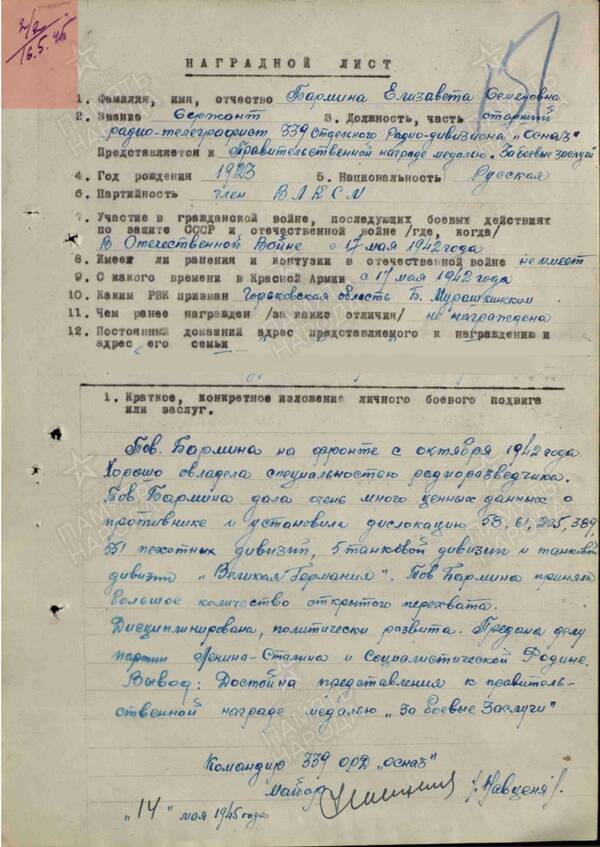 16.5.45
НАГРАДНОЙ ЛИСТ
1. Фамилия, имя, отчество Бармина Елизавета Семеновна
2. Звание Сержант 3. Должность, часть старший
радио-телеграфист 339 Отдельного Радио-дивизиона „Осназ"
Представляется к Правительственной награде медалью „За боевые заслуги"
4. Год рождения 1923 5. Национальность Русская
6. Партийность член ВЛКСМ
7. Участие в гражданской войне, последующих боевых действиях
по защите СССР и отечественной войне /где, когда/
В Отечественной Войне с 17 мая 1942 года
8. Имеет ли ранения и контузии в отечественной войне не имеет
9. С какого времени в Красной Армии с 17 мая 1942 года
10. Каким РВК призван Горьковская область Б. Мурашкинским
11. Чем ранее награжден /за какие отличия/ не награждена
12. Постоянный домашний адрес представляемого к награждению и
адрес его семьи
1. Краткое, конкретное изложение личного боевого подвига
или заслуг.
Тов. Бармина на фронте с октября 1942 года
Хорошо овладела специальностью радиоразведчика.
Тов. Бармина дала очень много ценных данных о
противнике и установила дислокацию 58, 61, 205, 389,
551 пехотных дивизий, 5 танковой дивизии и танковой
дивизии „Великая Германия". Тов Бармина приняла
большое количество открытого перехвата.
Дисциплинирована, политически развита. Предана делу
партии Ленина-Сталина и Социалистической Родине.
Вывод: Достойна представления к правитель-
ственной награде медалью „За боевые заслуги"
Командир 339 ОРД „Осназ"
Майор
„14" мая 1945 года